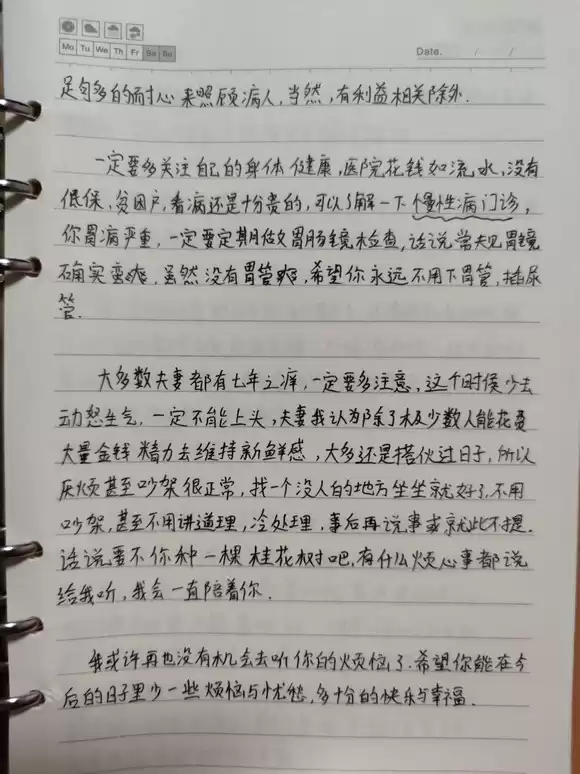 Mo Tu We Th Fr Sa Su
Date. / /
足够多的耐心来照顾病人，当然，有利益相关除外.
一定要多关注自己的身体健康，医院花钱如流水，没有
低保，贫困户，看病还是十分贵的，可以了解一下慢性病门诊，
你胃病严重，一定要定期做胃肠镜检查，话说常规胃镜
确实蛮爽，虽然没有胃管爽，希望你永远不用下胃管，插尿
管.
大多数夫妻都有七年之痒，一定要多注意，这个时候少去
动怒生气，一定不能上头，夫妻我认为除了极少数人能花费
大量金钱精力去维持新鲜感，大多还是搭伙过日子，所以
厌烦甚至吵架很正常，找一个没人的地方坐坐就好了，不用
吵架，甚至不用讲道理，冷处理，事后再说事或就此不提.
话说要不你种一棵桂花树吧，有什么烦心事都说
给我听，我会一直陪着你.
我或许再也没有机会去听你的烦恼了.希望你能在今
后的日子里少一些烦恼与忧愁，多十份的快乐与幸福.